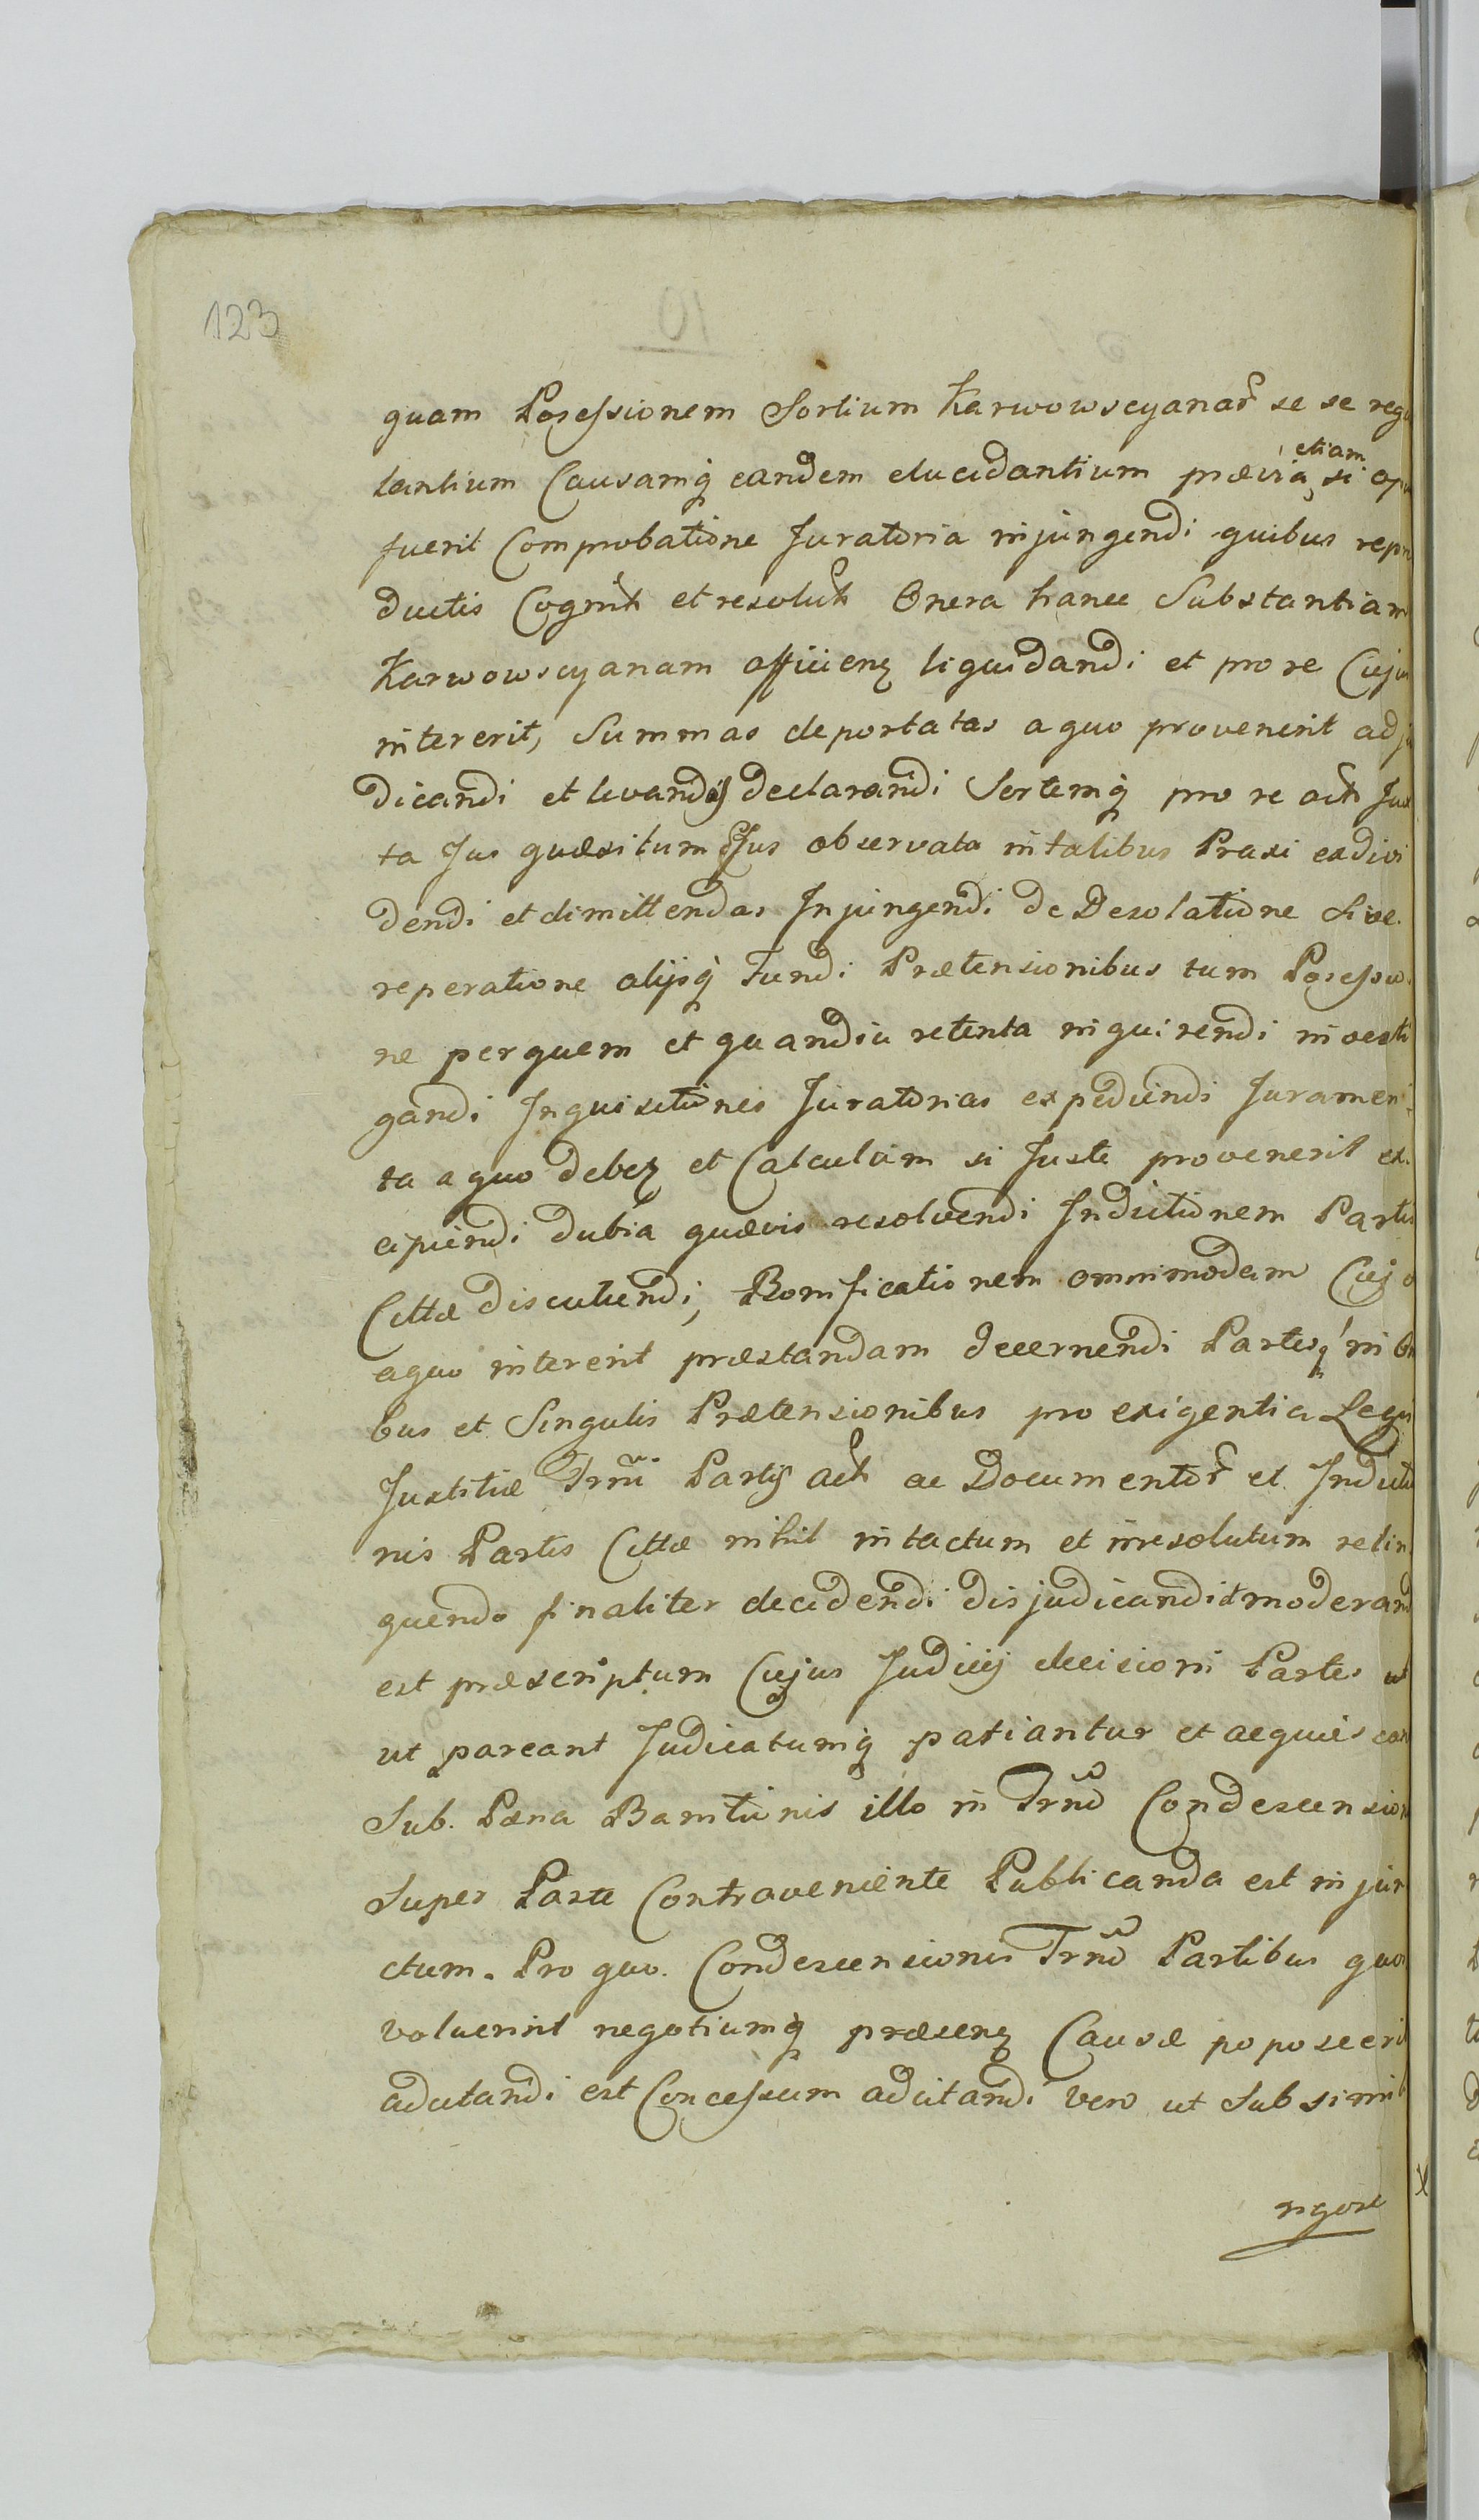 123
quam Possessionem Sortium Karwowscyanar̃ se se regu
lantium Causamq̃ eandem elucidantium prævia, etiam si opu
fuerit Comprobatione Juratoria injungendi quibus repro
ductis Cognit̃ et resolut̃ Onera hance Substantiam
Karwowscyanam afficienz liquidandi et pro re Cujus
intererit, Summas deportatas a quo provenerit adju
dicandi et levandas declarandi Sortemq̃ pro re act̃ Jux
ta Jus quæsitum Ejus observata in talibus Praxi exdivi
dendi et dimittendas Injungendi de Desolatione Sive
reperatione alijsq̃ Fundi Prætensionibus tum Possessio
ne per quem et quandiu retenta inquirendi investi
gandi Inquisitiones Juratorias expediendi Juramen
ta a quo debez et Calculum si Juste provenerit ex
cipiendi dubia quævis resolvendi Inductionem Partis
Cittæ discutiendi, Bonificationem omnimodam Cujo
a quo intererit præstandam decernendi Partesq̃ in O
bus et Singulis Prætensionibus pro exigentia Legis
Justitiæ Trm̃i Partis act̃ ac Documentor̃ et Inductio
nis Partis Cittæ nihil intactum et irresolutum relin
quendo finaliter decidendi disjudicandi et moderand
est præscriptum Cujus Judicij decisioni Partes ut
ut pareant Judicatumq̃ patiantur et acquiescan
Sub. Pæna Banitionis illo in Trm̃o Condescension
Super Parte Contraveniente Publicanda est injun
ctum. Pro quo. Condescensionis Trm̃o Partibus quos
voluerint negotiumq̃ præsenz Causæ poposcerit
adcitandi est Concessum adcitandi vero ut Sub simil
rigore